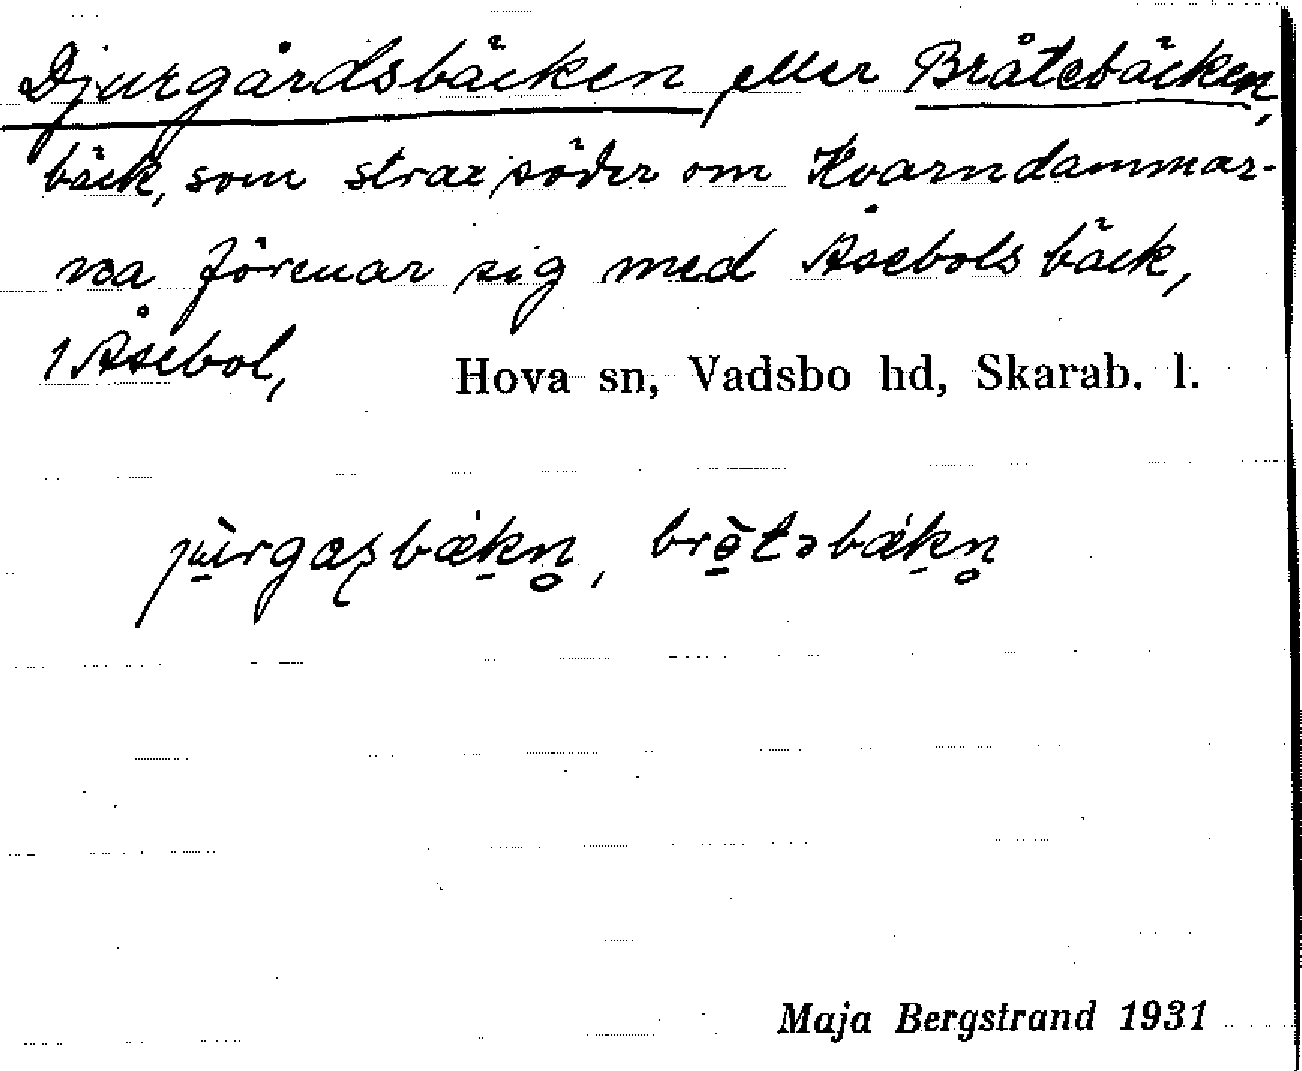 Djurgårdsbäcken eller Bråtebäcken,
bäck, som strax söder om Kvarndammar-
na förenar sig med Åsebols bäck,
1 Åsebol,
Hova sn, Vadsbo hd, Skarab. l.
brò̱təbækn̥
Maja Bergstrand 1931